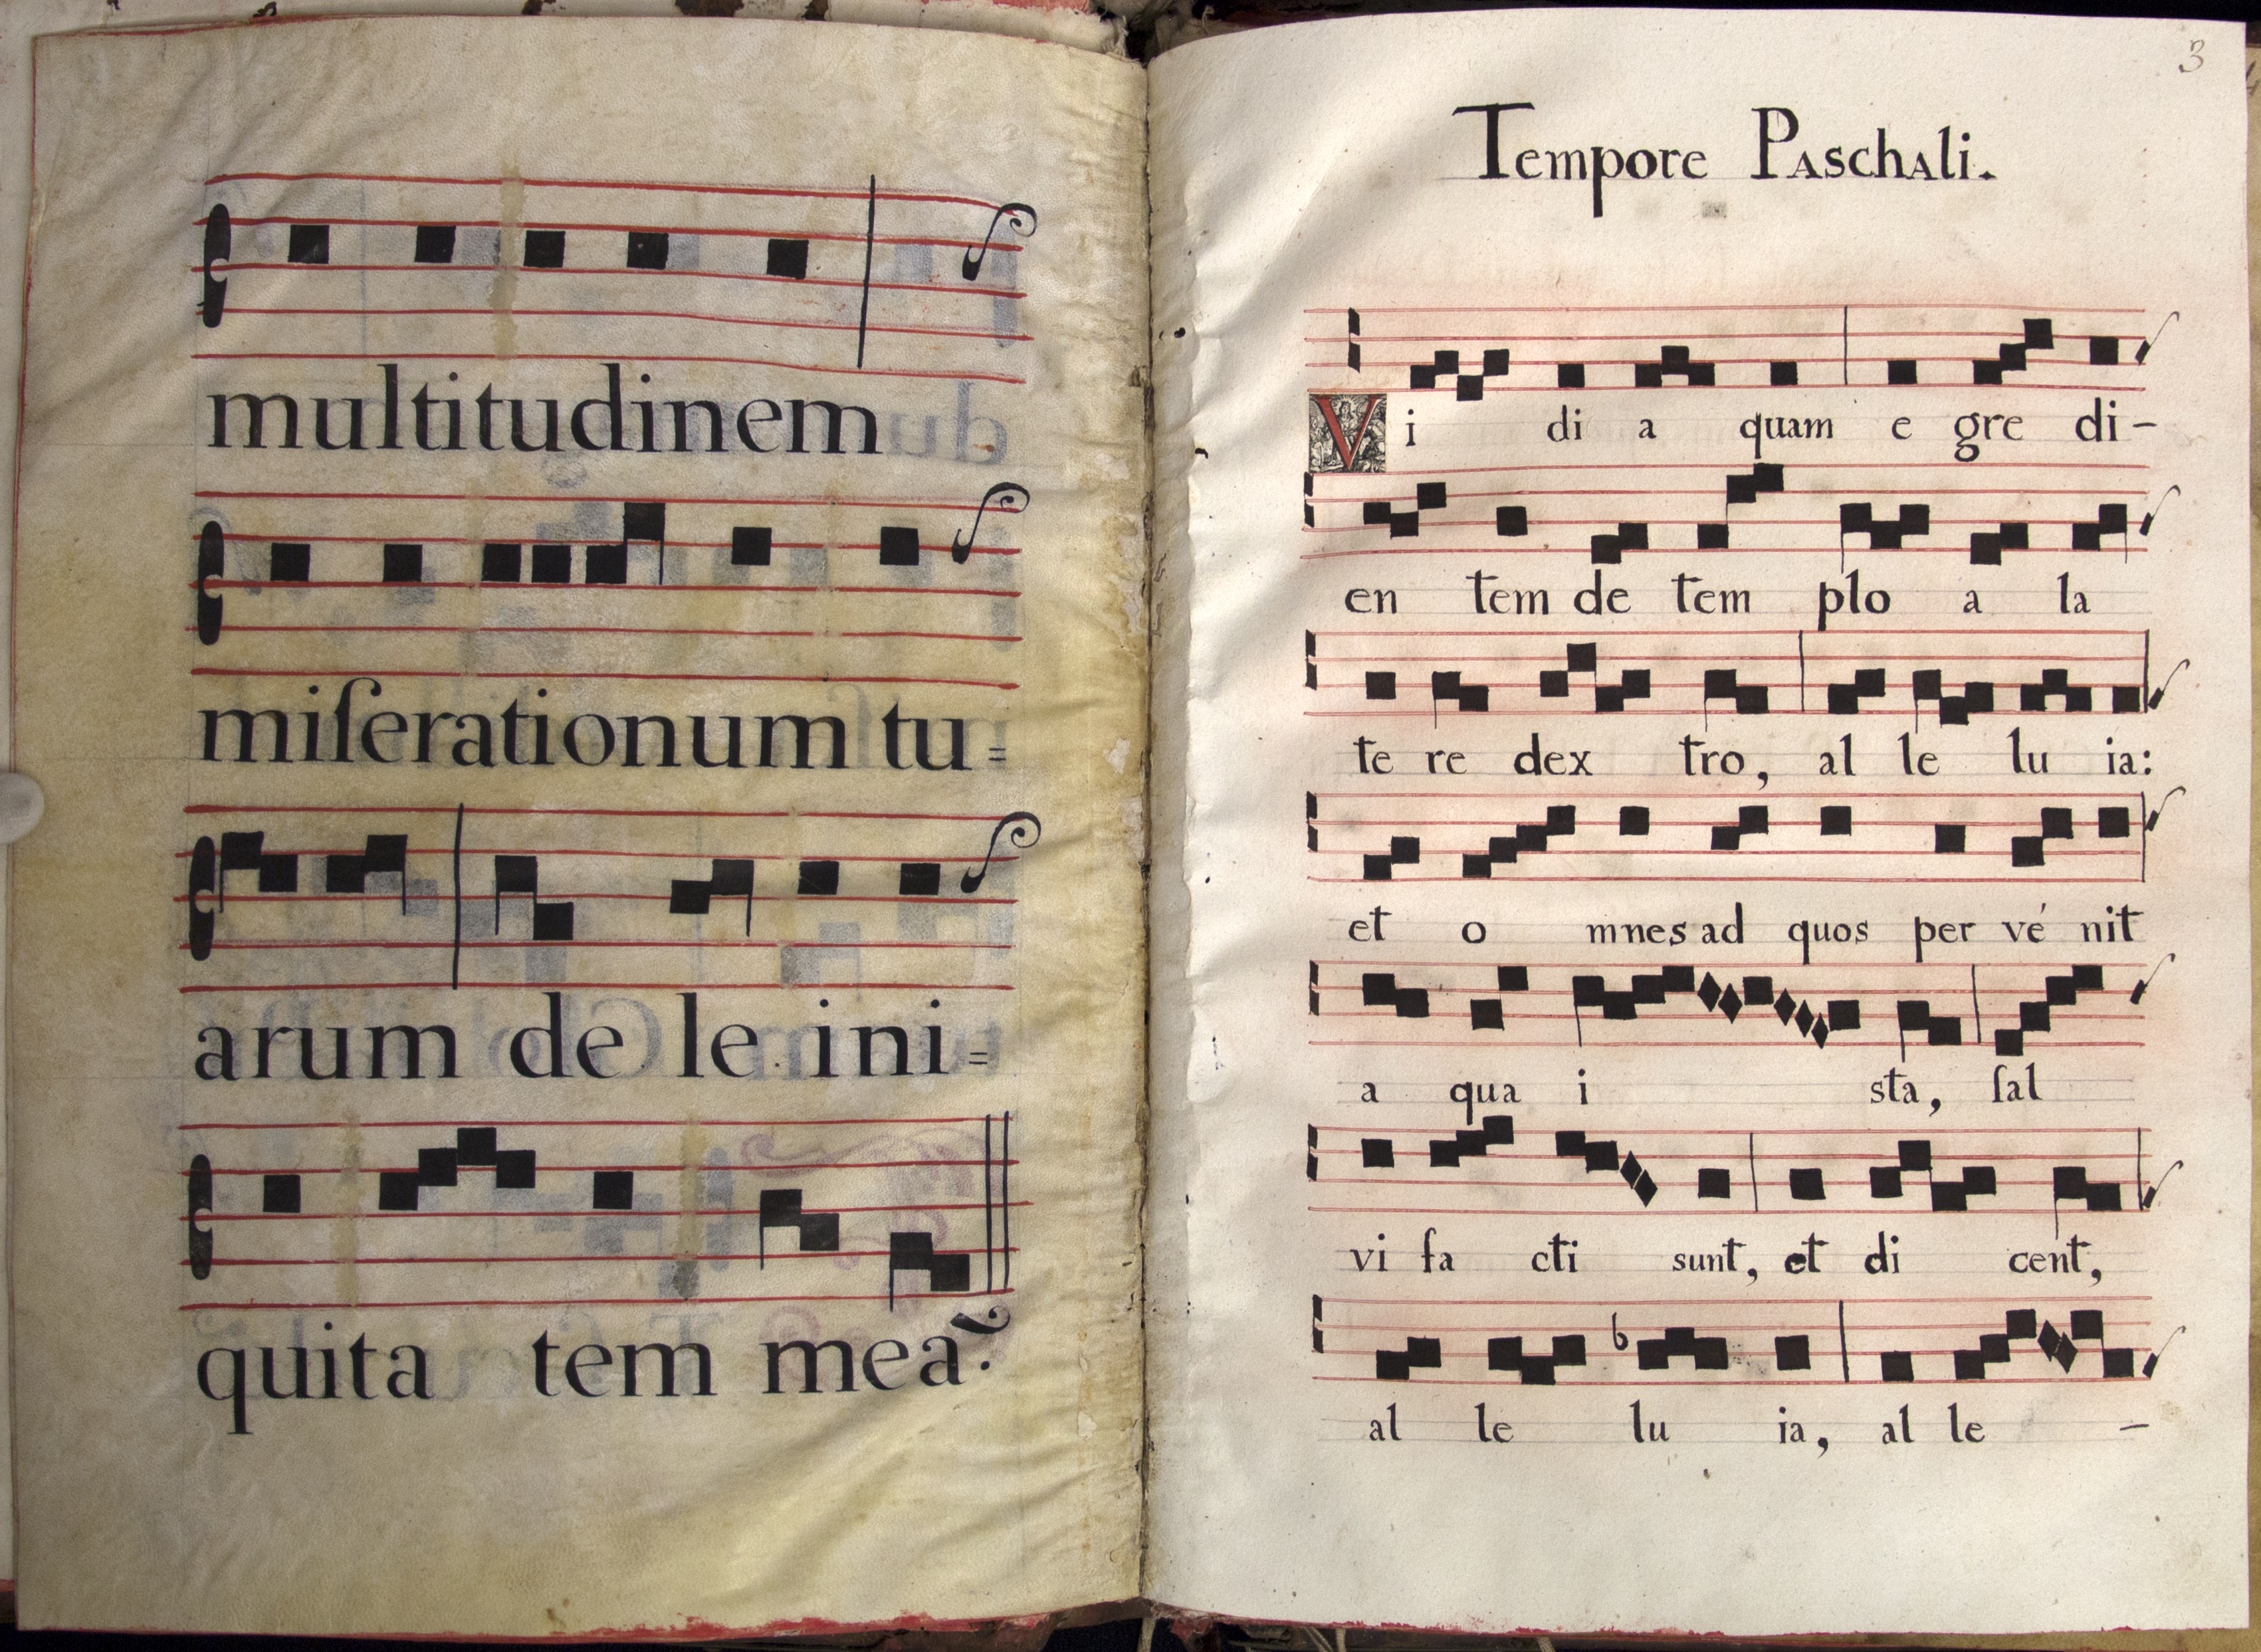 multitudinem
miſerationum tu=
arum de le ini=
quita tem mea᷃.
3
Tempore Paschali.
Vi di a quam e gre di-
en tem de tem plo a la
te re dex tro, al le lu ia:
et o mnes ad quos per vé nit
a qua i sta, ſal
vi fa cti sunt, et di cent,
al le lu ia, al le -